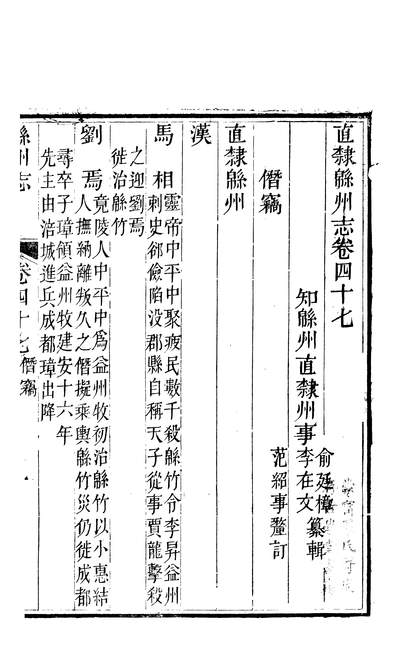 直隸緜州志卷四十七
知緜州直隸州事李在文 俞廷樟 纂輯
范紹事釐訂
僭竊
直隸緜州
漢
馬相靈帝中平中聚疲民數千殺緜竹令李昇益州
刺史郤儉陷沒郡縣自稱天子從事賈龍擊殺
之迎劉焉
徙治緜竹
劉焉竟陵人中平中爲益州牧初治緜竹以小惠結
人撫納離叛久之僭擬乘輿緜竹災仍徙成都
尋卒子璋領益州牧建安十六年
先主由涪城進兵成都璋出降
緜州志
卷四十七 僭竊